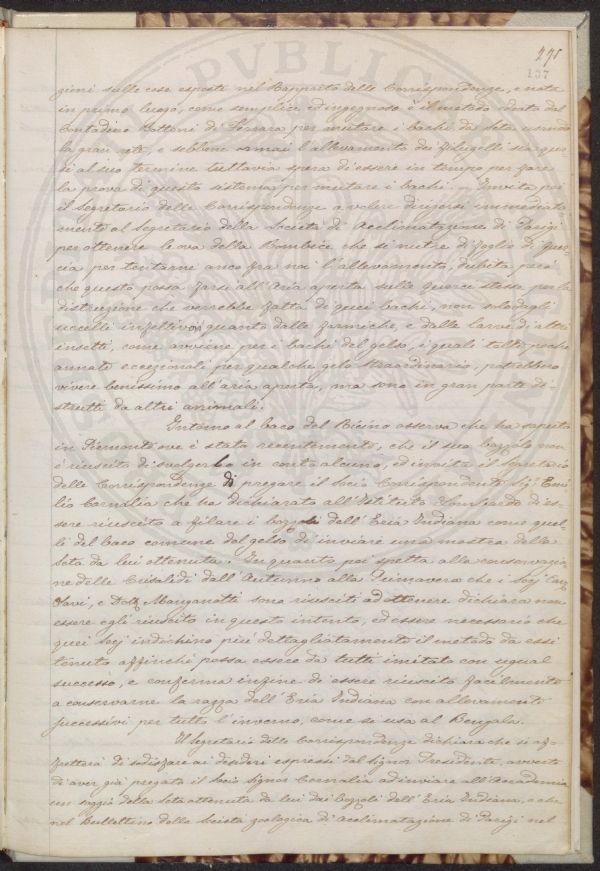 275
137
gioni sulle cose esposte nel Rapporto delle Corrispondenze, e nota
in primo luogo, come semplice, ed ingegnoso è il metodo ideato dal
Contadino Bottoni di Ferrara per mutare i bachi da seta usando
la gran rete, e sebbene omai l'allevamento dei Filugelli sia qua-
si al suo termine tuttavia spera di essere in tempo per fare
la prova di questo sistema per mutare i bachi. Invita poi
il Segretario delle Corrispondenze a volere dirigersi immediata-
mente al Segretario della Società di Acclimatazione di Parigi
per ottenere le ova della Bombice che si nutre di foglie di quer-
cia per tentarne anco fra noi l'allevamento, dubita però
che questo possa farsi all'Aria aperta sulle querci stesse per la
distruzione che verrebbe fatta di quei bachi, non solo dagli
uccelli insettivori quanto dalle formiche, e dalle larve di altri
insetti, come avviene per i bachi del gelso, i quali tolte poche
annate eccezionali per qualche gelo straordinario, potrebbero
vivere benissimo all'aria aperta, ma sono in gran parte di-
strutti da altri animali.
Intorno al baco del Ricino osserva che ha saputo
in Piemonte ove è stato recentemente, che il suo bozzolo non
è riuscito di svolgerlo in conto alcuno, ed invita il Segretario
delle Corrispondenze di pregare il Socio Corrispondente Sig. Emi-
lio Cornalia che ha dichiarato all'Istituto Lombardo di es-
sere riuscito a filare i bozzoli dell'Eria Indiana come quel-
li del baco comune del gelso di inviare una mostra della
Seta da lui ottenuta. In quanto poi spetta alla conservazio-
ne delle Crisalidi dall'Autunno alla Primavera che i Sigg.
Savi, e Dott. Manganotti sono riusciti ad ottenere dichiara non
essere egli riuscito in questo intento, ed essere necessario che
quei Sigg. indichino più dettagliatamente il metodo da essi
tenuto affinchè possa essere da tutti imitato con ugual
successo, e conferma infine di essere riuscito facilmente
a conservarne la razza dell'Eria Indiana con allevamenti
successivi per tutto l'inverno, come si usa al Bengala.
Il Segretario delle Corrispondenze dichiara che si af-
fretterà di sodisfare ai desideri espressi dal Signor Presidente, avverte
di aver già pregato il Socio Signor Cornalia ad inviare all'Accademia
un saggio della Seta ottenuta da lui dai bozzoli dell'Eria Indiana, e che
nel Bullettino della Società zoologica di Acclimatazione di Parigi nel